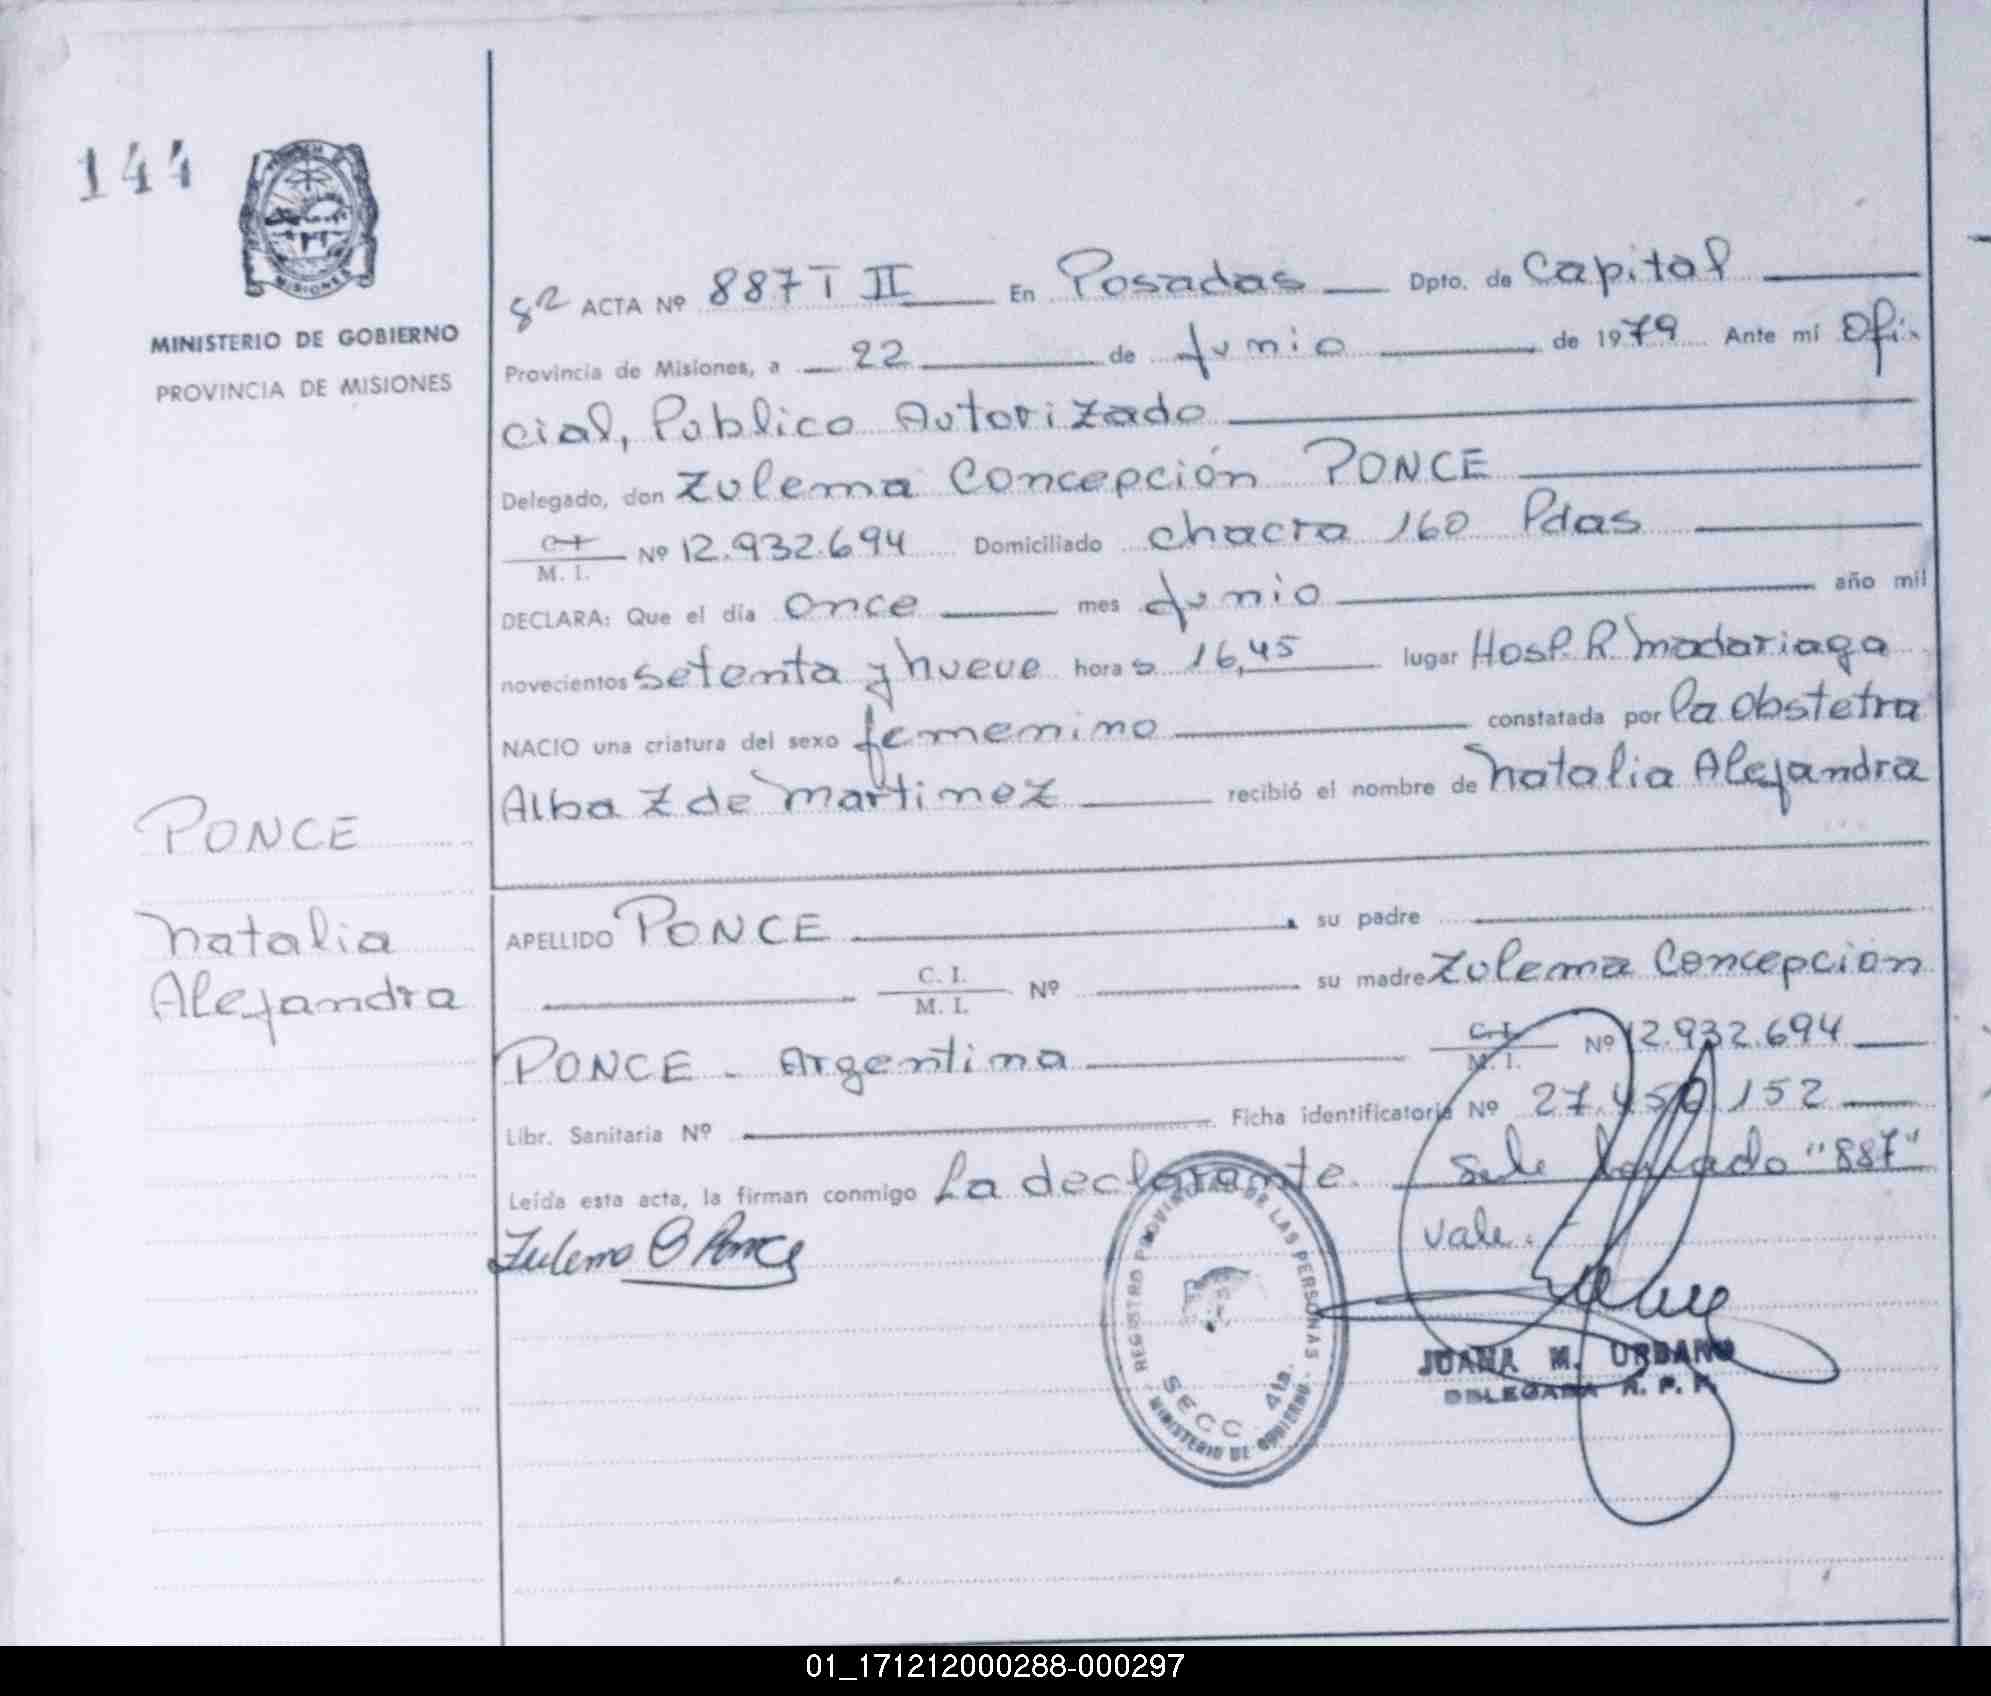 144
MINISTERIO DE GOBIERNO
PROVINCIA DE MISIONES
ACTA Nº 887 T II En Posadas Dpto. de Capital
Provincia de Misiones, a 22 de Junio de 1979 Ante mí Ofi-
cial, Publico Autorizado
Delegado, don Zulema Concepción PONCE
C.I. / M. I. Nº 12.932.694 Domiciliado chacra 160 Pdas
DECLARA: Que el día once mes Junio año mil
novecientos setenta y nueve hora s 16,45 lugar Hosp. R. Madariaga
NACIO una criatura del sexo femenino constatada por la Obstetra
Alba Z de Martinez recibió el nombre de Natalia Alejandra
PONCE
Natalia
Alejandra
APELLIDO PONCE su padre
C. I. / M. I. Nº su madre Zulema Concepción
PONCE - Argentina C.I. / M. I. Nº 12.932.694
Libr. Sanitaria Nº Ficha identificatoria Nº 27.450.152
Leída esta acta, la firman conmigo La declarante. "887"
Vale.
Zulema C Ponce
REGISTRO PROVINCIAL DE LAS PERSONAS
SECC. 4ta.
MINISTERIO DE GOBIERNO
JUANA M. URBANO
DELEGADA R. P. P.
01_171212000288-000297